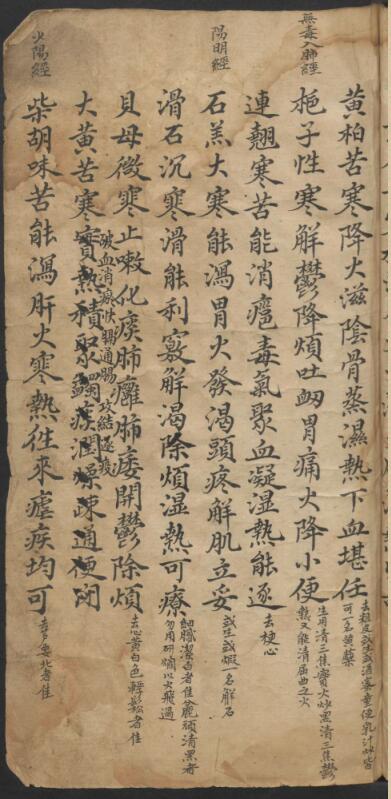 黃柏苦寒降火滋陰骨蒸濕熱下血堪任
去粗皮或生或酒蜜童便乳汁炒皆
可一名黃蘗
無毒入肺經
栀子性寒解鬱降煩吐衂胃痛火降小便
生用清三焦實火炒黑清三焦鬱
熱又能清屈曲之火
連翹寒苦能消癰毒氣聚血凝湿熱能逐
去梗心
陽明經
石羔大寒能瀉胃火發渴頭疼解肌立妥
或生或煅一名解石
滑石沉寒滑能利竅解渴除煩湿熱可療
細膩潔白者佳麄頑清黑者
勿用研爛以水飛過
貝母微寒止嗽化痰肺癰肺痿開鬱除煩
去心黃白色輕鬆者佳
大黃苦寒實熱積聚蠲痰潤燥疎通便閉
破血消瘀快膈通腸攻結逐瘀
火陽經
柴胡味苦能瀉肝火寒熱徃來瘧疾均可
去芦要北者佳